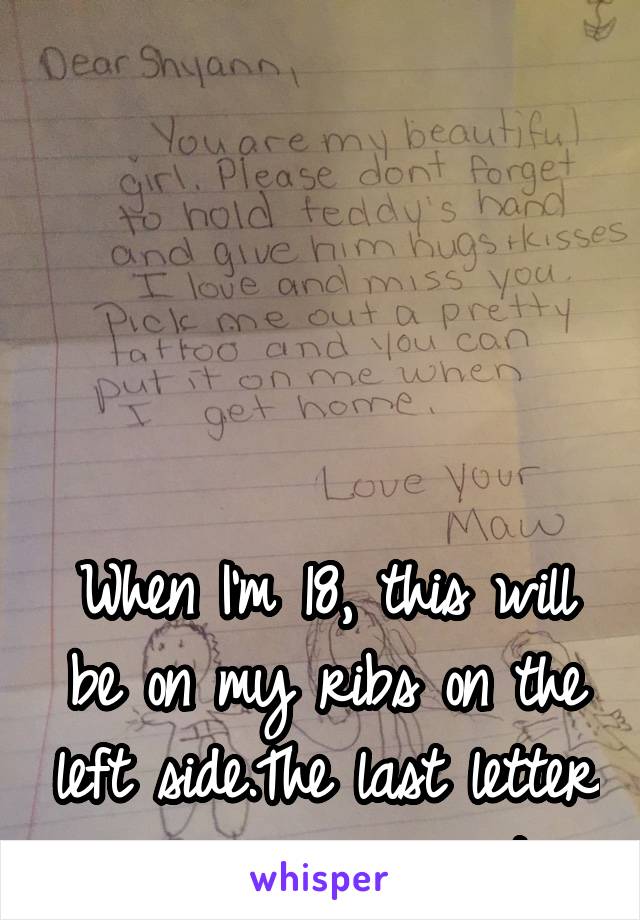 Dear Shyann,
You are my beautiful
girl. Please dont forget
to hold teddy's hand
and give him hugs + kisses
I love and miss you.
Pick me out a pretty
tattoo and you can
put it on me when
I get home.
Love your
Maw
When I'm 18, this will
be on my ribs on the
left side.The last letter
whisper